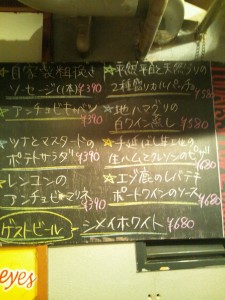 自家製粗挽き
ソーセージ(1本)¥390
アンチョビキャベツ
¥390
ツナとマスタードの
ポテトサラダ ¥390
レンコンの
アンチョビーマリネ
¥390
平貝と天然ブリの
2種盛りカルパッチョ
¥580
地ハマグリの
白ワイン蒸し ¥580
手延ばし生地の
生ハムとクレソンのピザ
¥680
エゾ鹿のレバテキ
ポートワインのソース
¥680
ゲストビール
シメイホワイト ¥680
eyes